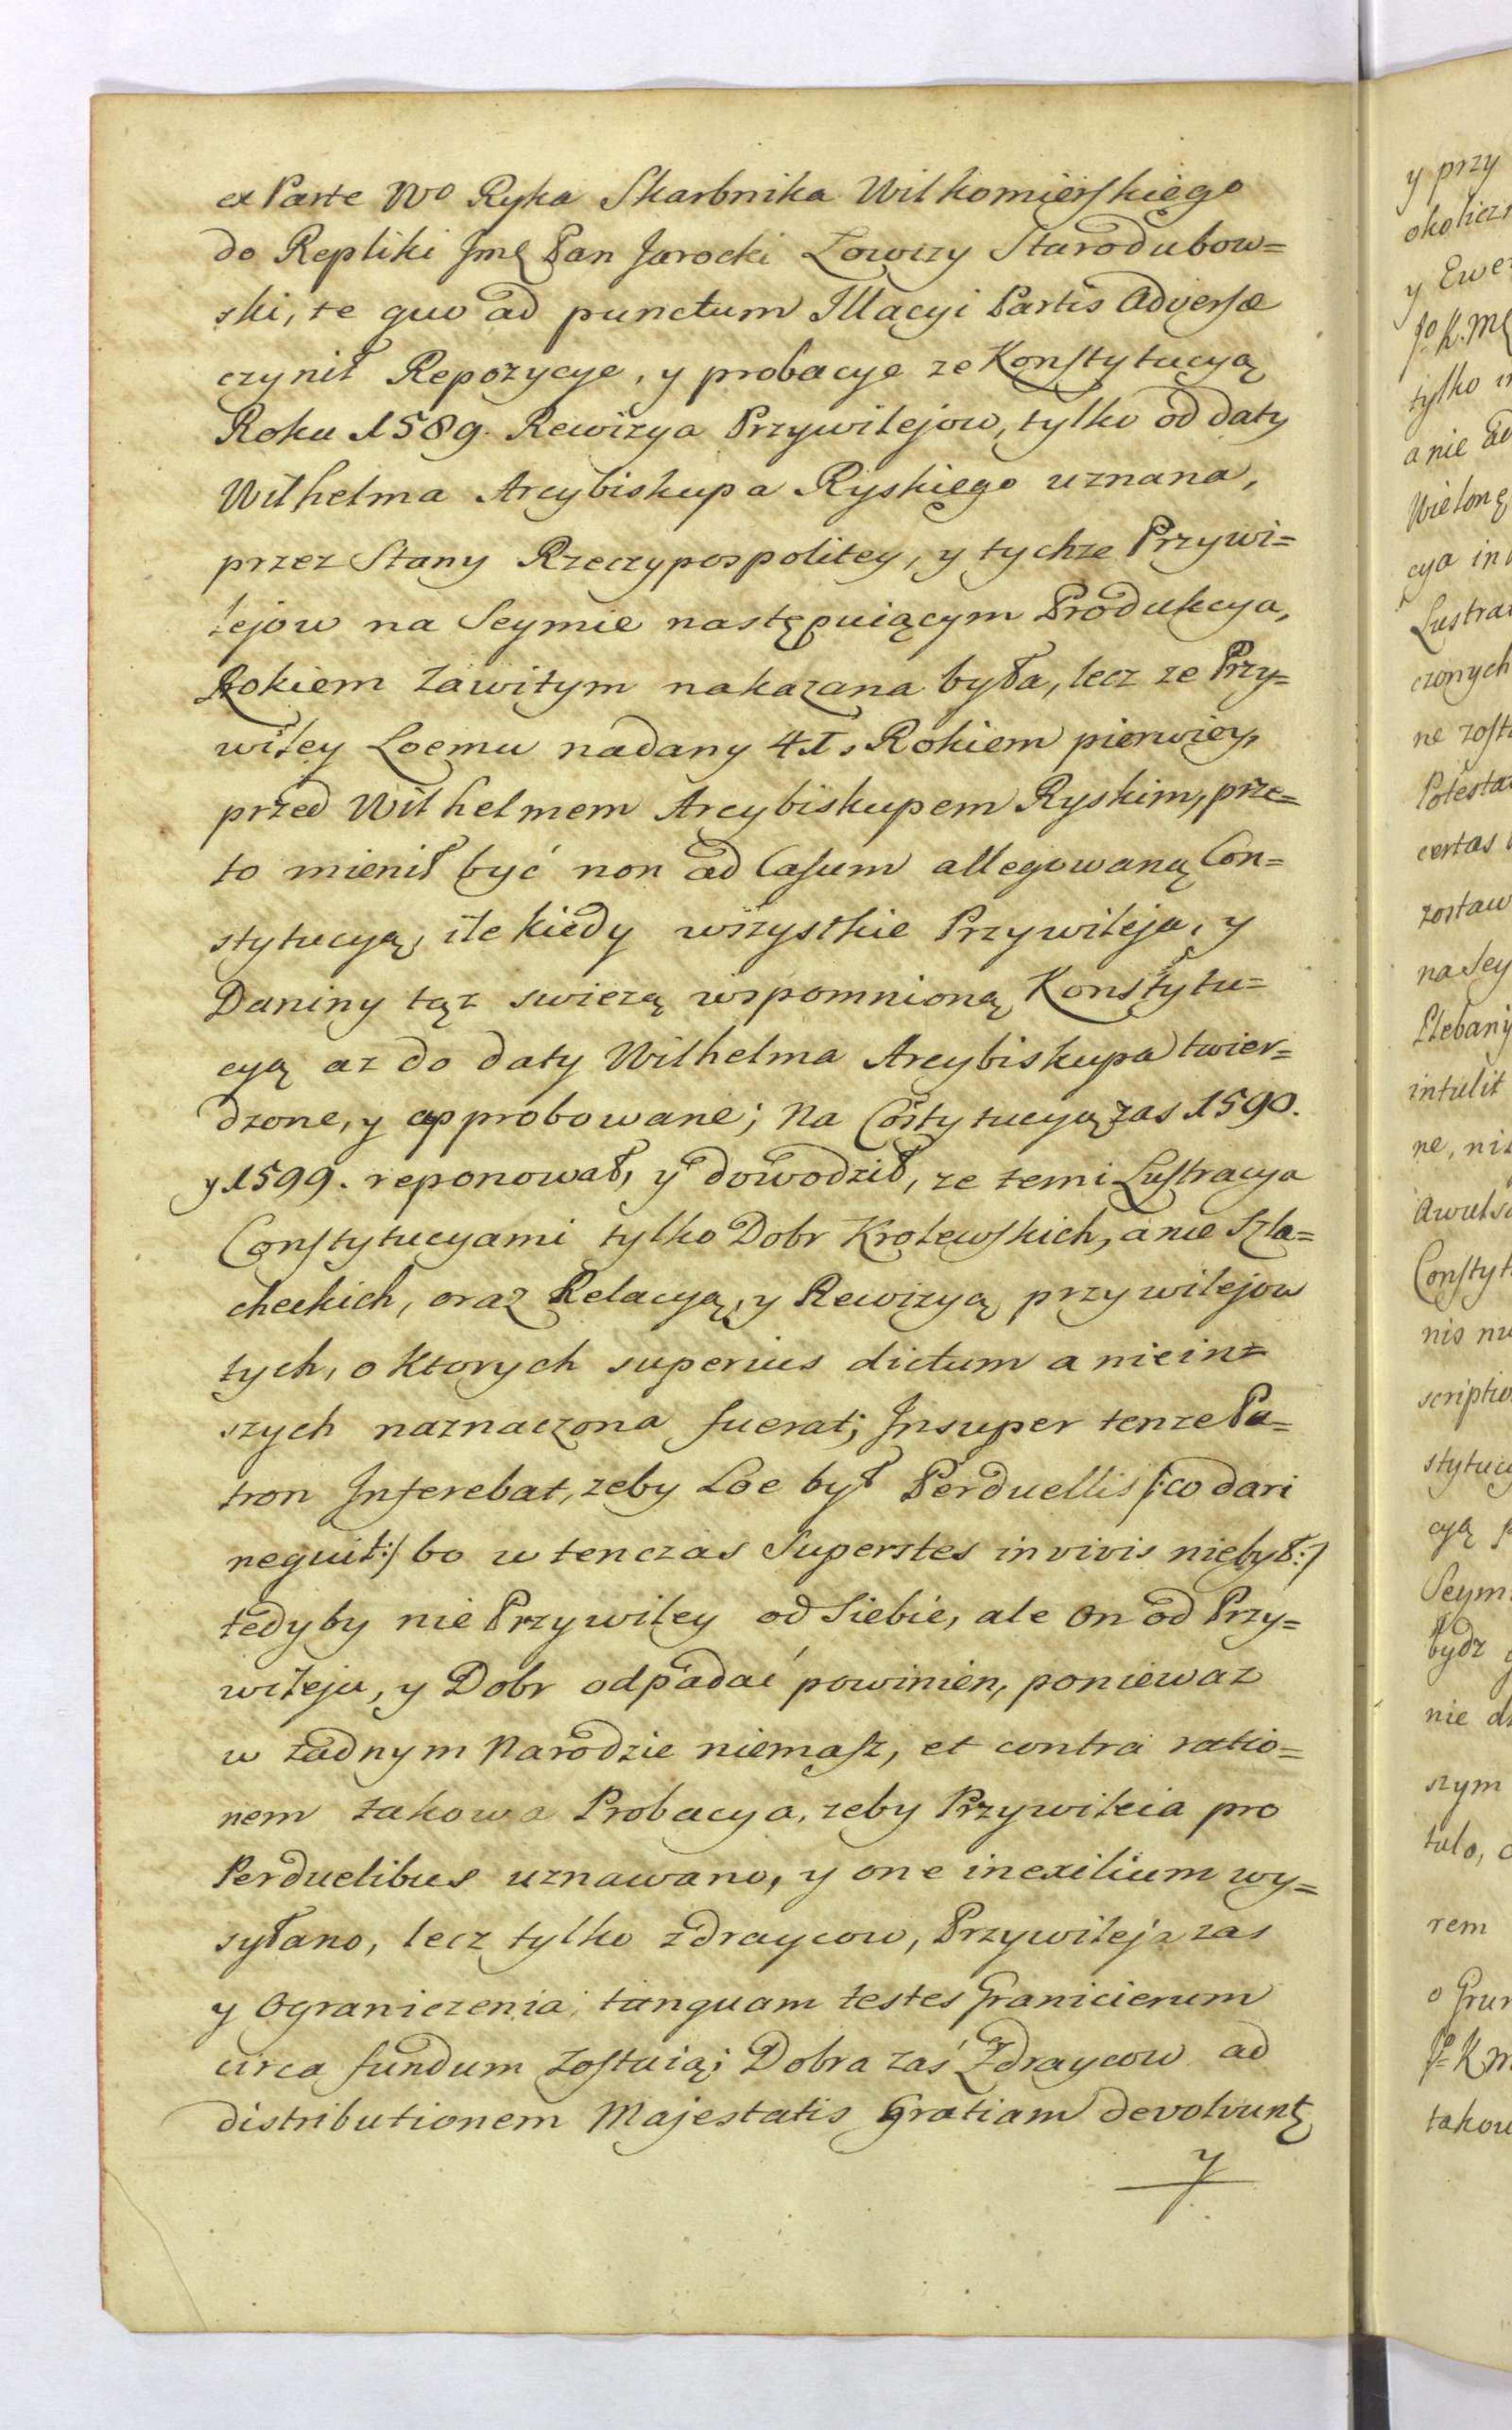 ex Parte Wo Ryka Skarbnika Wilkomierskiego
do Repliki Jmę Pan Jarocki Łowczy Starodubow=
ski, te quo ad punctum Illacyi Partis Adversæ
czynił Repozycye, y probacye ze Konstytucyą
Roku 1589. Rewizya Przywilejow, tylko od daty
Wilhelma Arcybiskupa Ryskiego uznana,
przez Stany Rzeczypospolitey, y tychze Przywi=
lejow na Seymie następuiącym Produkcya,
Rokiem Zawitym nakazana była, lecz ze Przy=
wiley Loemu nadany 4I, Rokiem pierwiey,
przed Wilhelmem Arcybiskupem Ryskim, prze=
to mienił być non ad Casum allegowaną Con=
stytucyą, ile kiedy wszystkie Przywileja, y
Daniny tąz swiezą wspomnioną Konstytu=
cyą az do daty Wilhelma Arcybiskupa twier=
dzone, y approbowane; Na Costytucyą zas 1590.
y 1599. reponował, y dowodził, ze temi Lustracya
Constytucyami tylko Dobr Krolewskich, a nie Szla=
checkich, oraz Relacyą, y Rewizyą przywilejow
tych, o Ktorych superius dictum a nie in=
szych naznaczona fuerat; Insuper tenze Pa=
tron Inferebat, zeby Loe był Perduellis /:co dari
nequit:/ bo w tenczas Superstes in vivis niebył:/
tedy by nie Przywiley od Siebie, ale on od Przy=
wileju, y Dobr odpadać powinien, poniewaz
w zadnym Narodzie niemasz, et contra ratio=
nem takowa Probacya, zeby Przywileia pro
Perduelibus uznawano, y one in exilium wy=
syłano, lecz tylko zdraycow, Przywileja zas
y Ograniczenia tanquam testes Granicierum
circa fundum Zostaią; Dobra zaś Zdraycow ad
distributionem Majestatis Gratiam devolvuntę
y
y przy
y
tylko
a nie
cya
czonych
ne
certas
na Sey
intulit
ne, niz
nis
nie
szym
rem
o